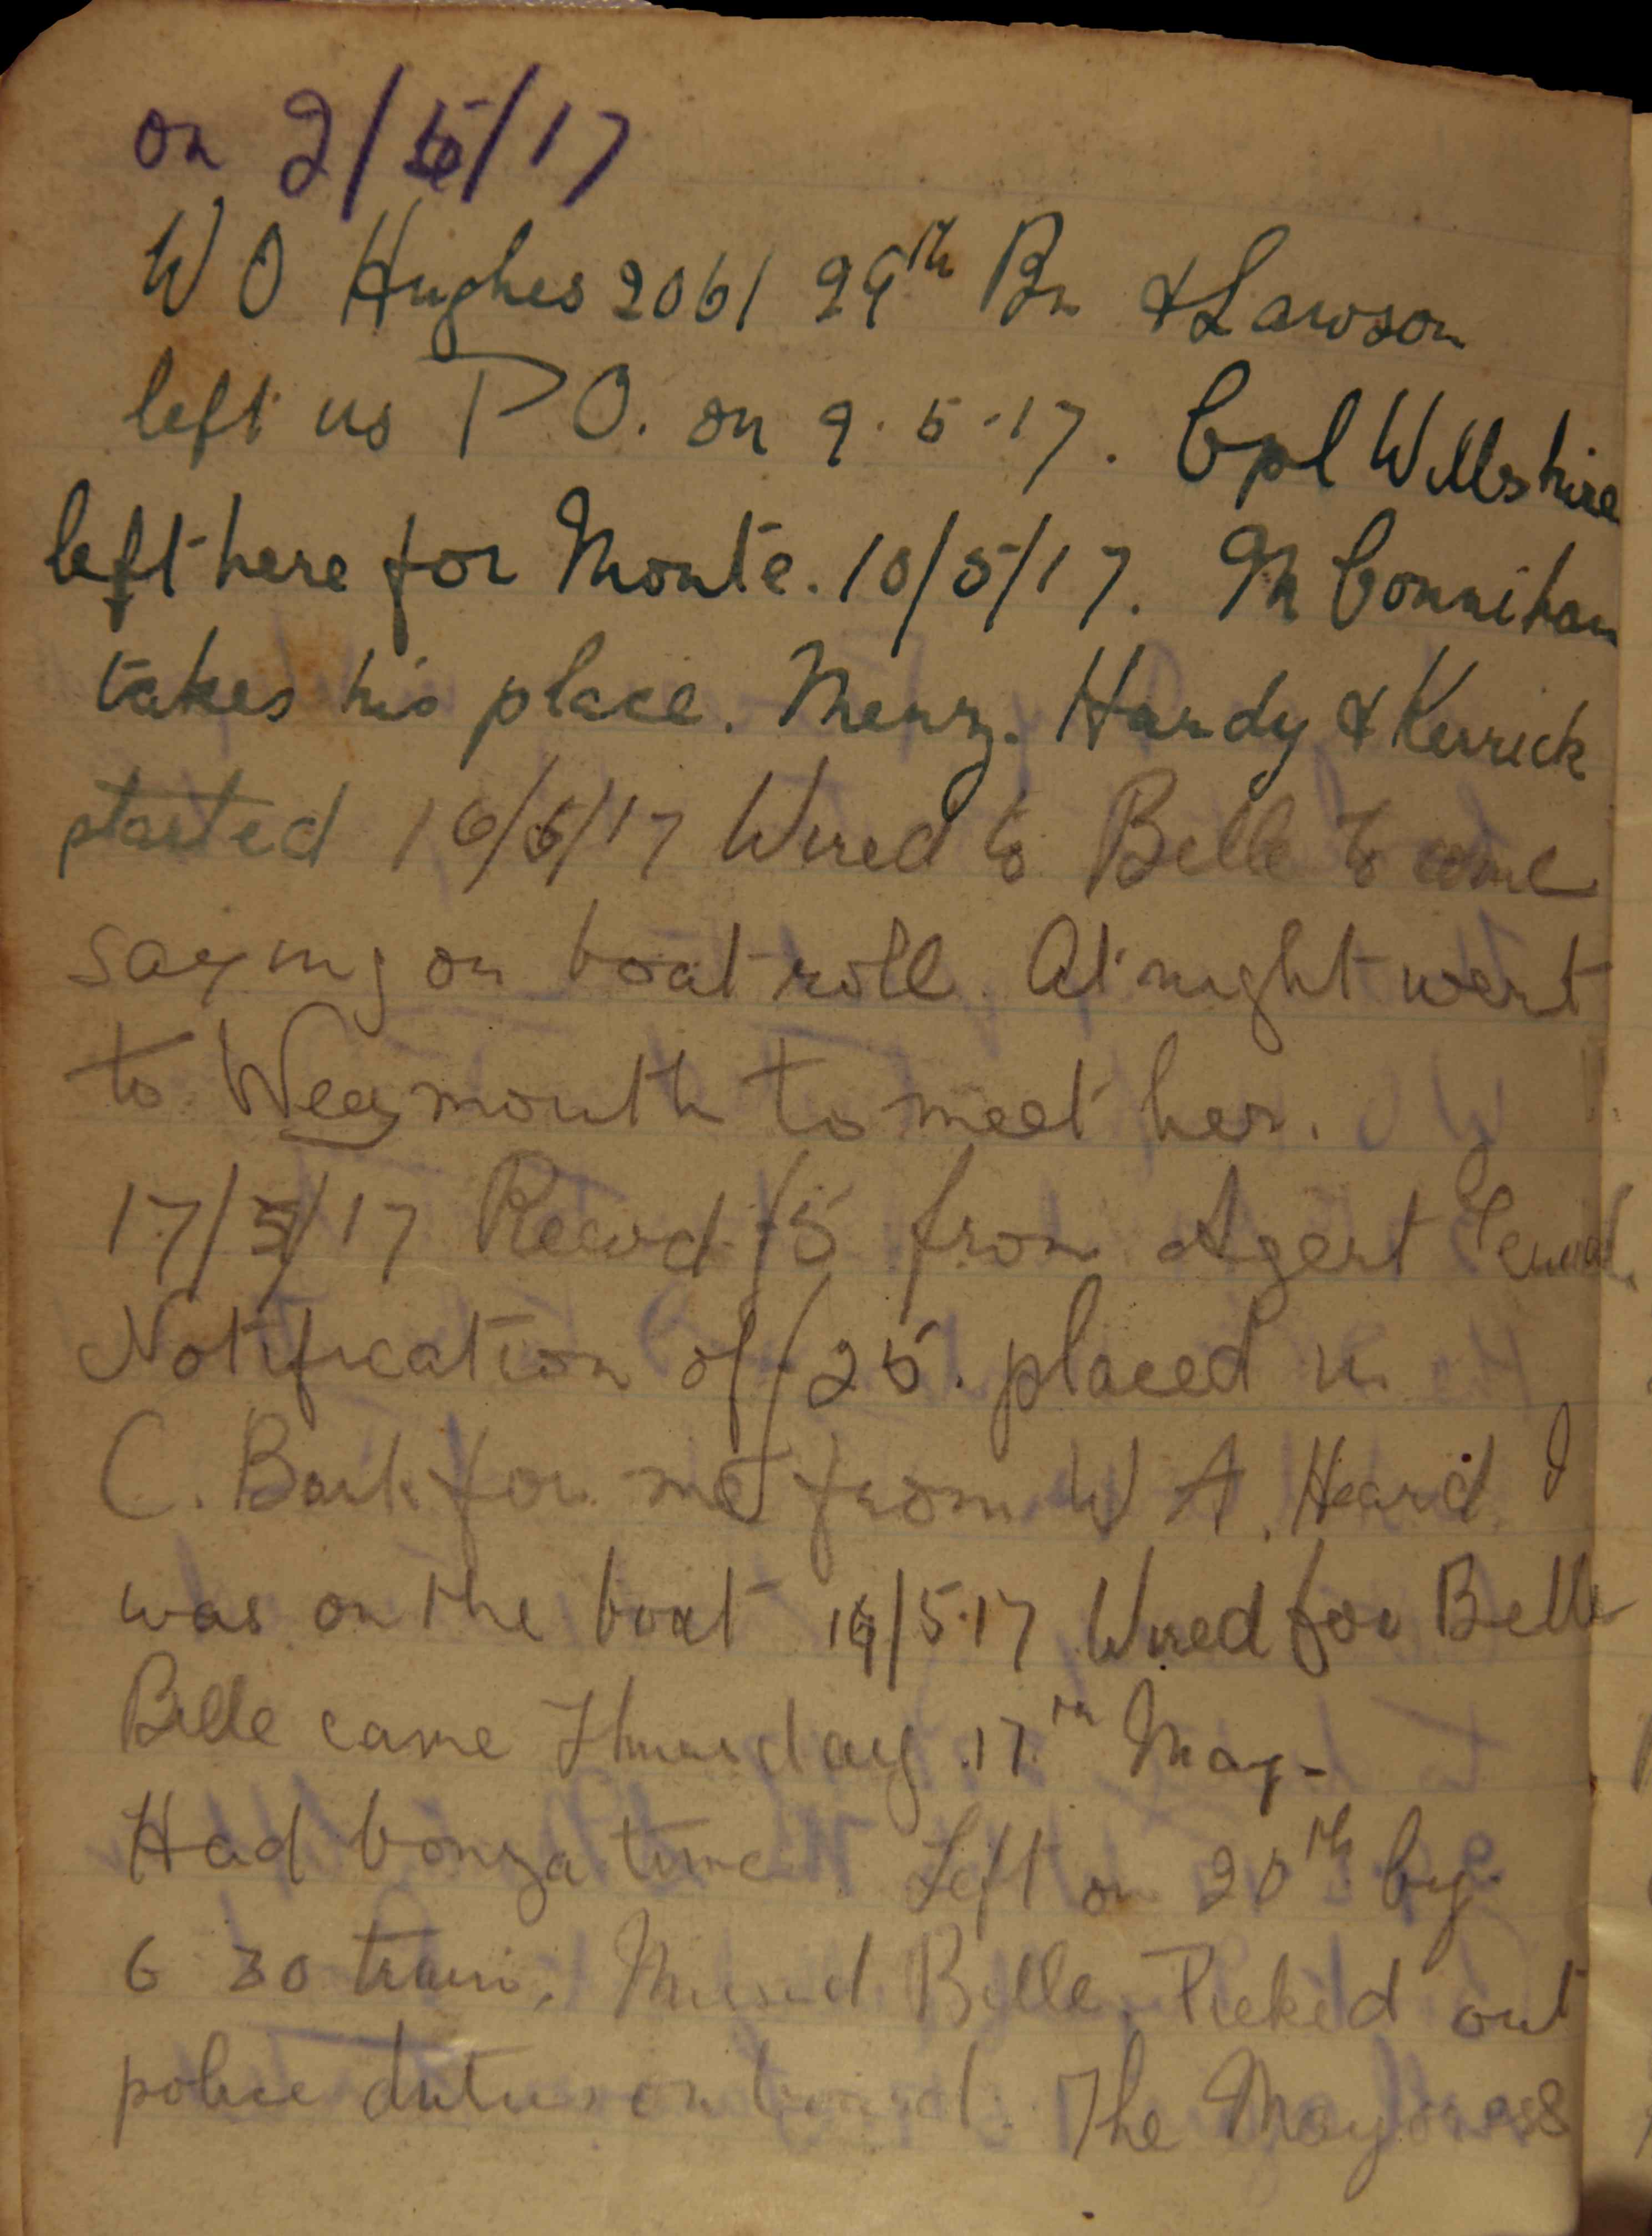 on 2/5/17
W O Hughes 2061 29th Bn & Lawson
left us P O. on 9.5.17. Cpl Willshire
left here for Monte. 10/5/17. M Connihan
takes his place. Menz. Hardy & Kerrick
started 10/5/17 Wired to Belle to come
saying on boat roll. At night went
to Weymouth to meet her.
17/5/17 Recvd £5 from Agent General.
Notification of £25. placed in
C. Bank for me from W A. Heard I
was on the boat 16/5.17 Wired for Belle
Belle came Thursday 17th May-
Had bonza time. Left on 20th by
6 30 train. Missed Belle. Picked out
police duties on board. The Mayoress